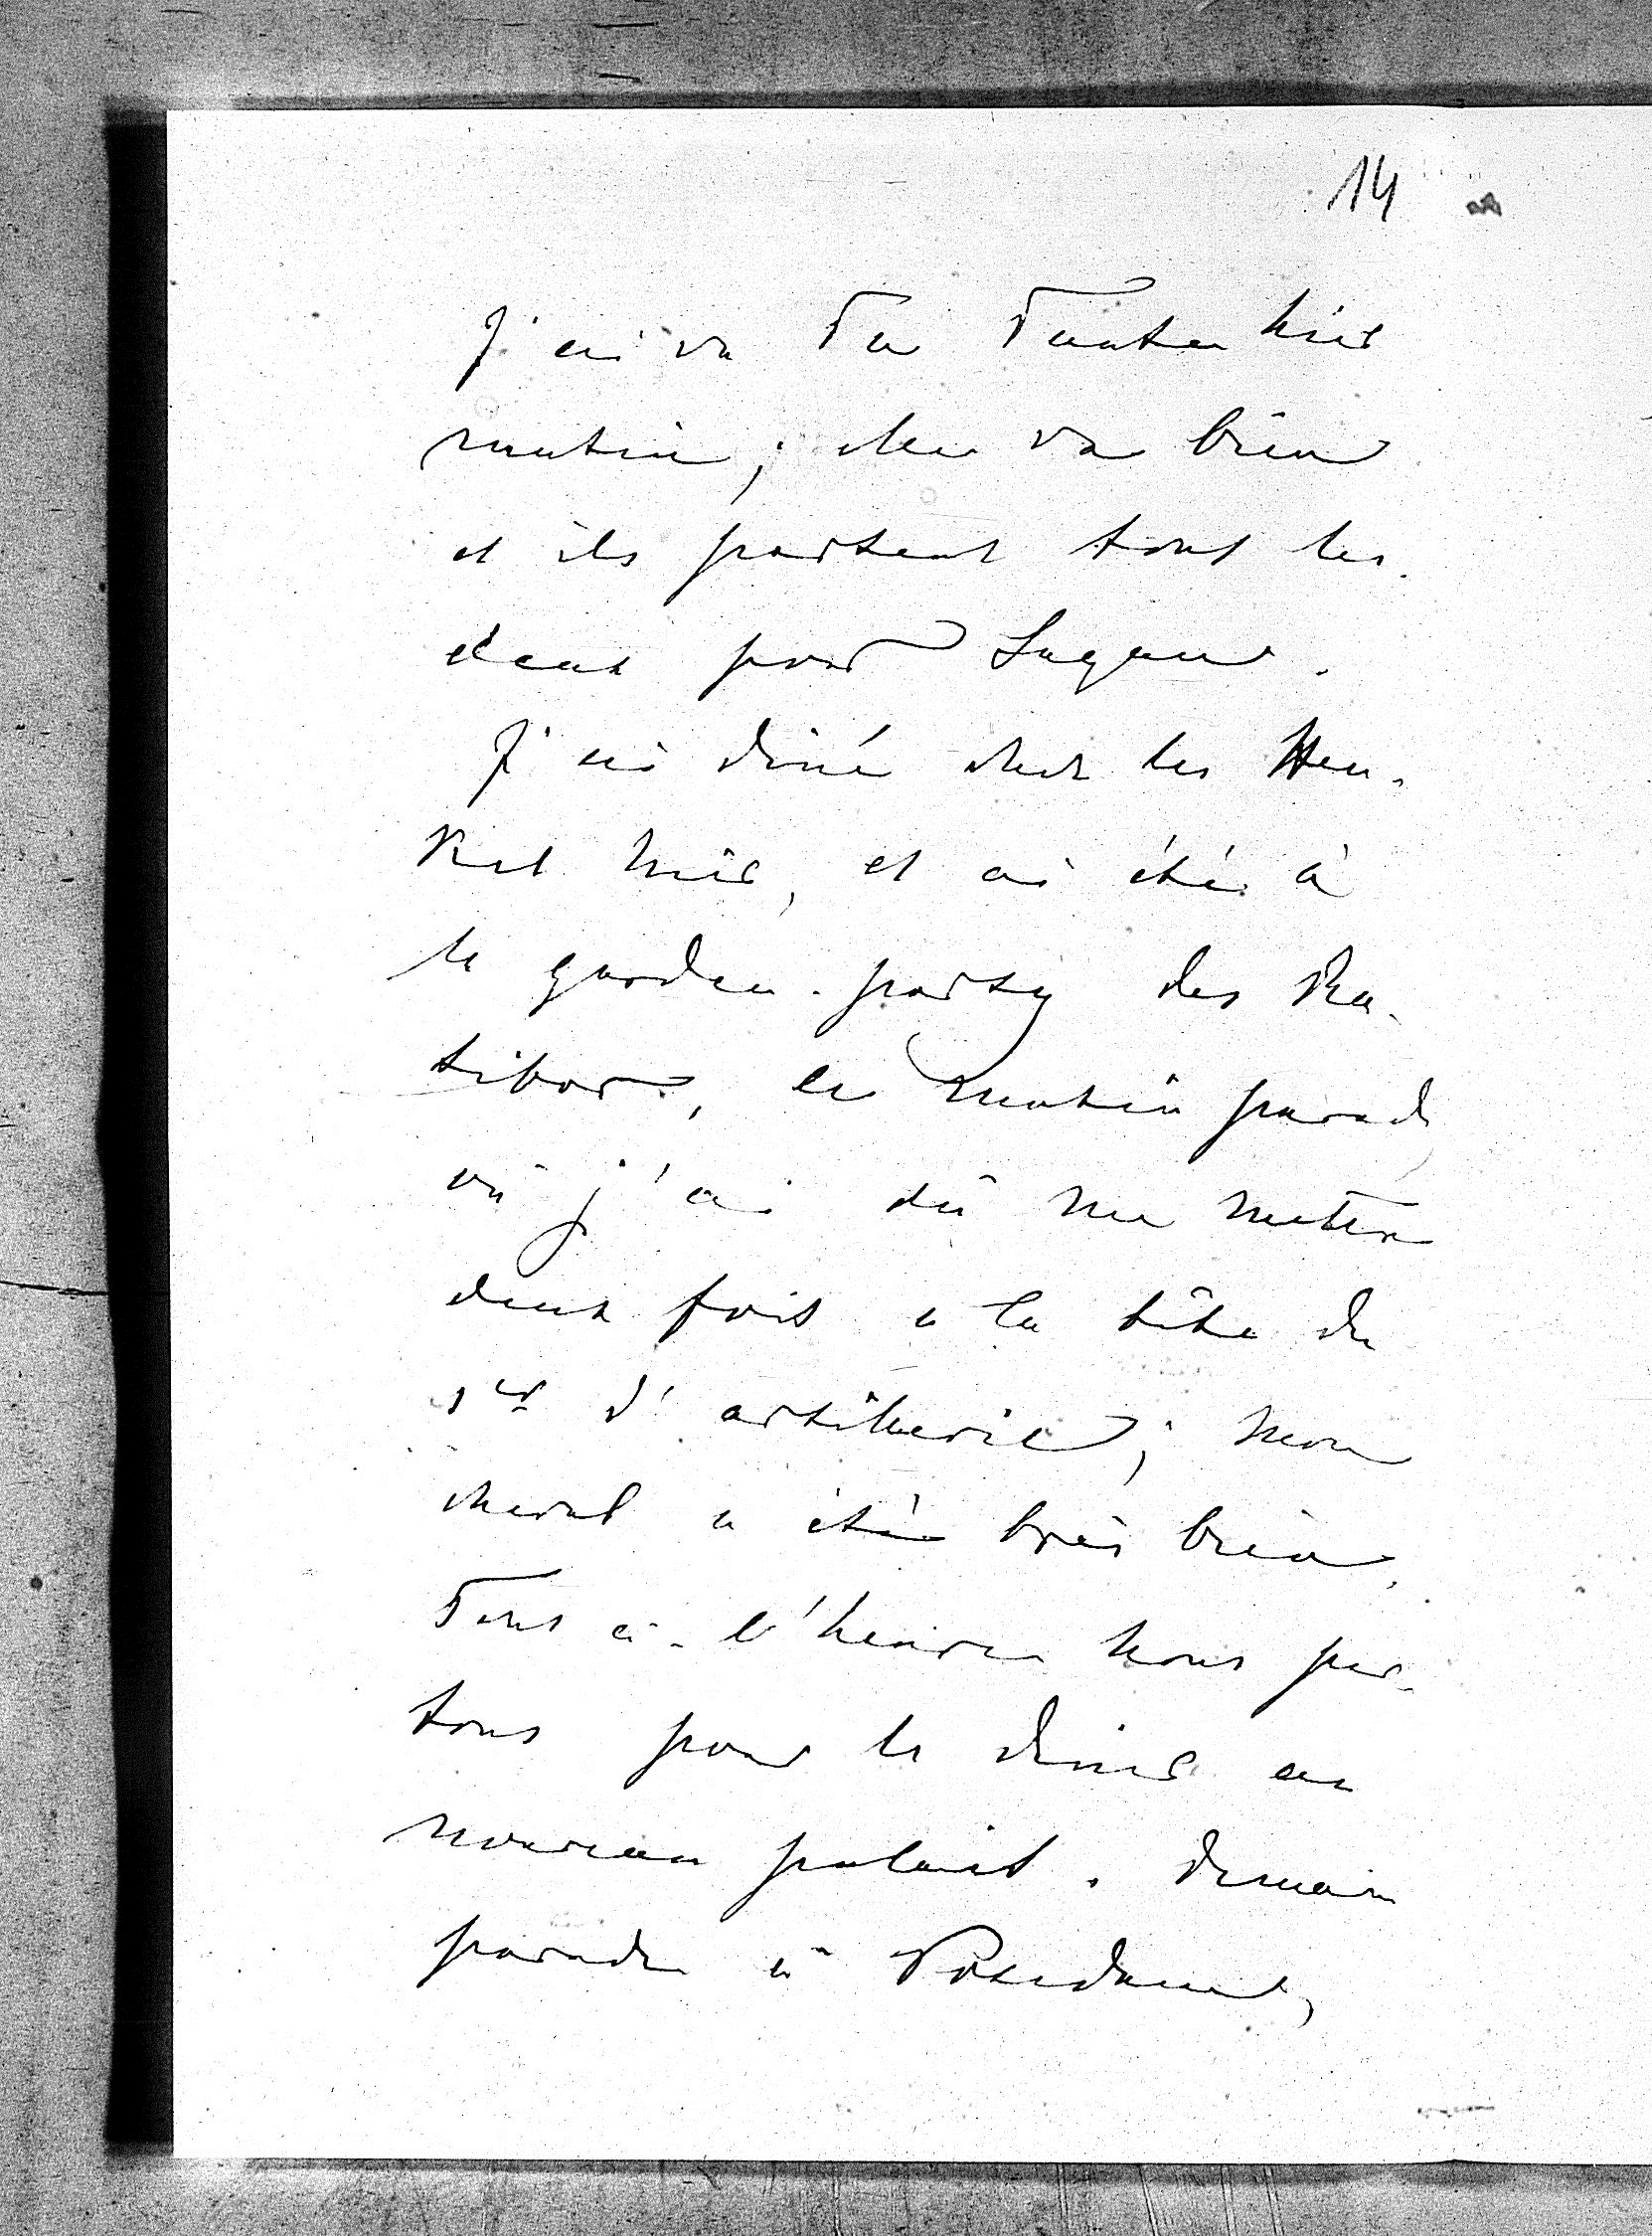 14
J'ai vu Ta Tante hier
matin; elle va bien
et ils partent tous les
deux pour Sagan.
J'ai diné chez les Hen-
kel hier, et ai été à
la garden-party des Ra-
tibor, le matin parade
où j'ai dû me mettre
deux fois à la tête du
1er d'artillerie; mon
cheval a été très bien.
Tout à l'heure nous par-
tons pour le diner au
nouveau palais. Demain
parade à Potsdam,